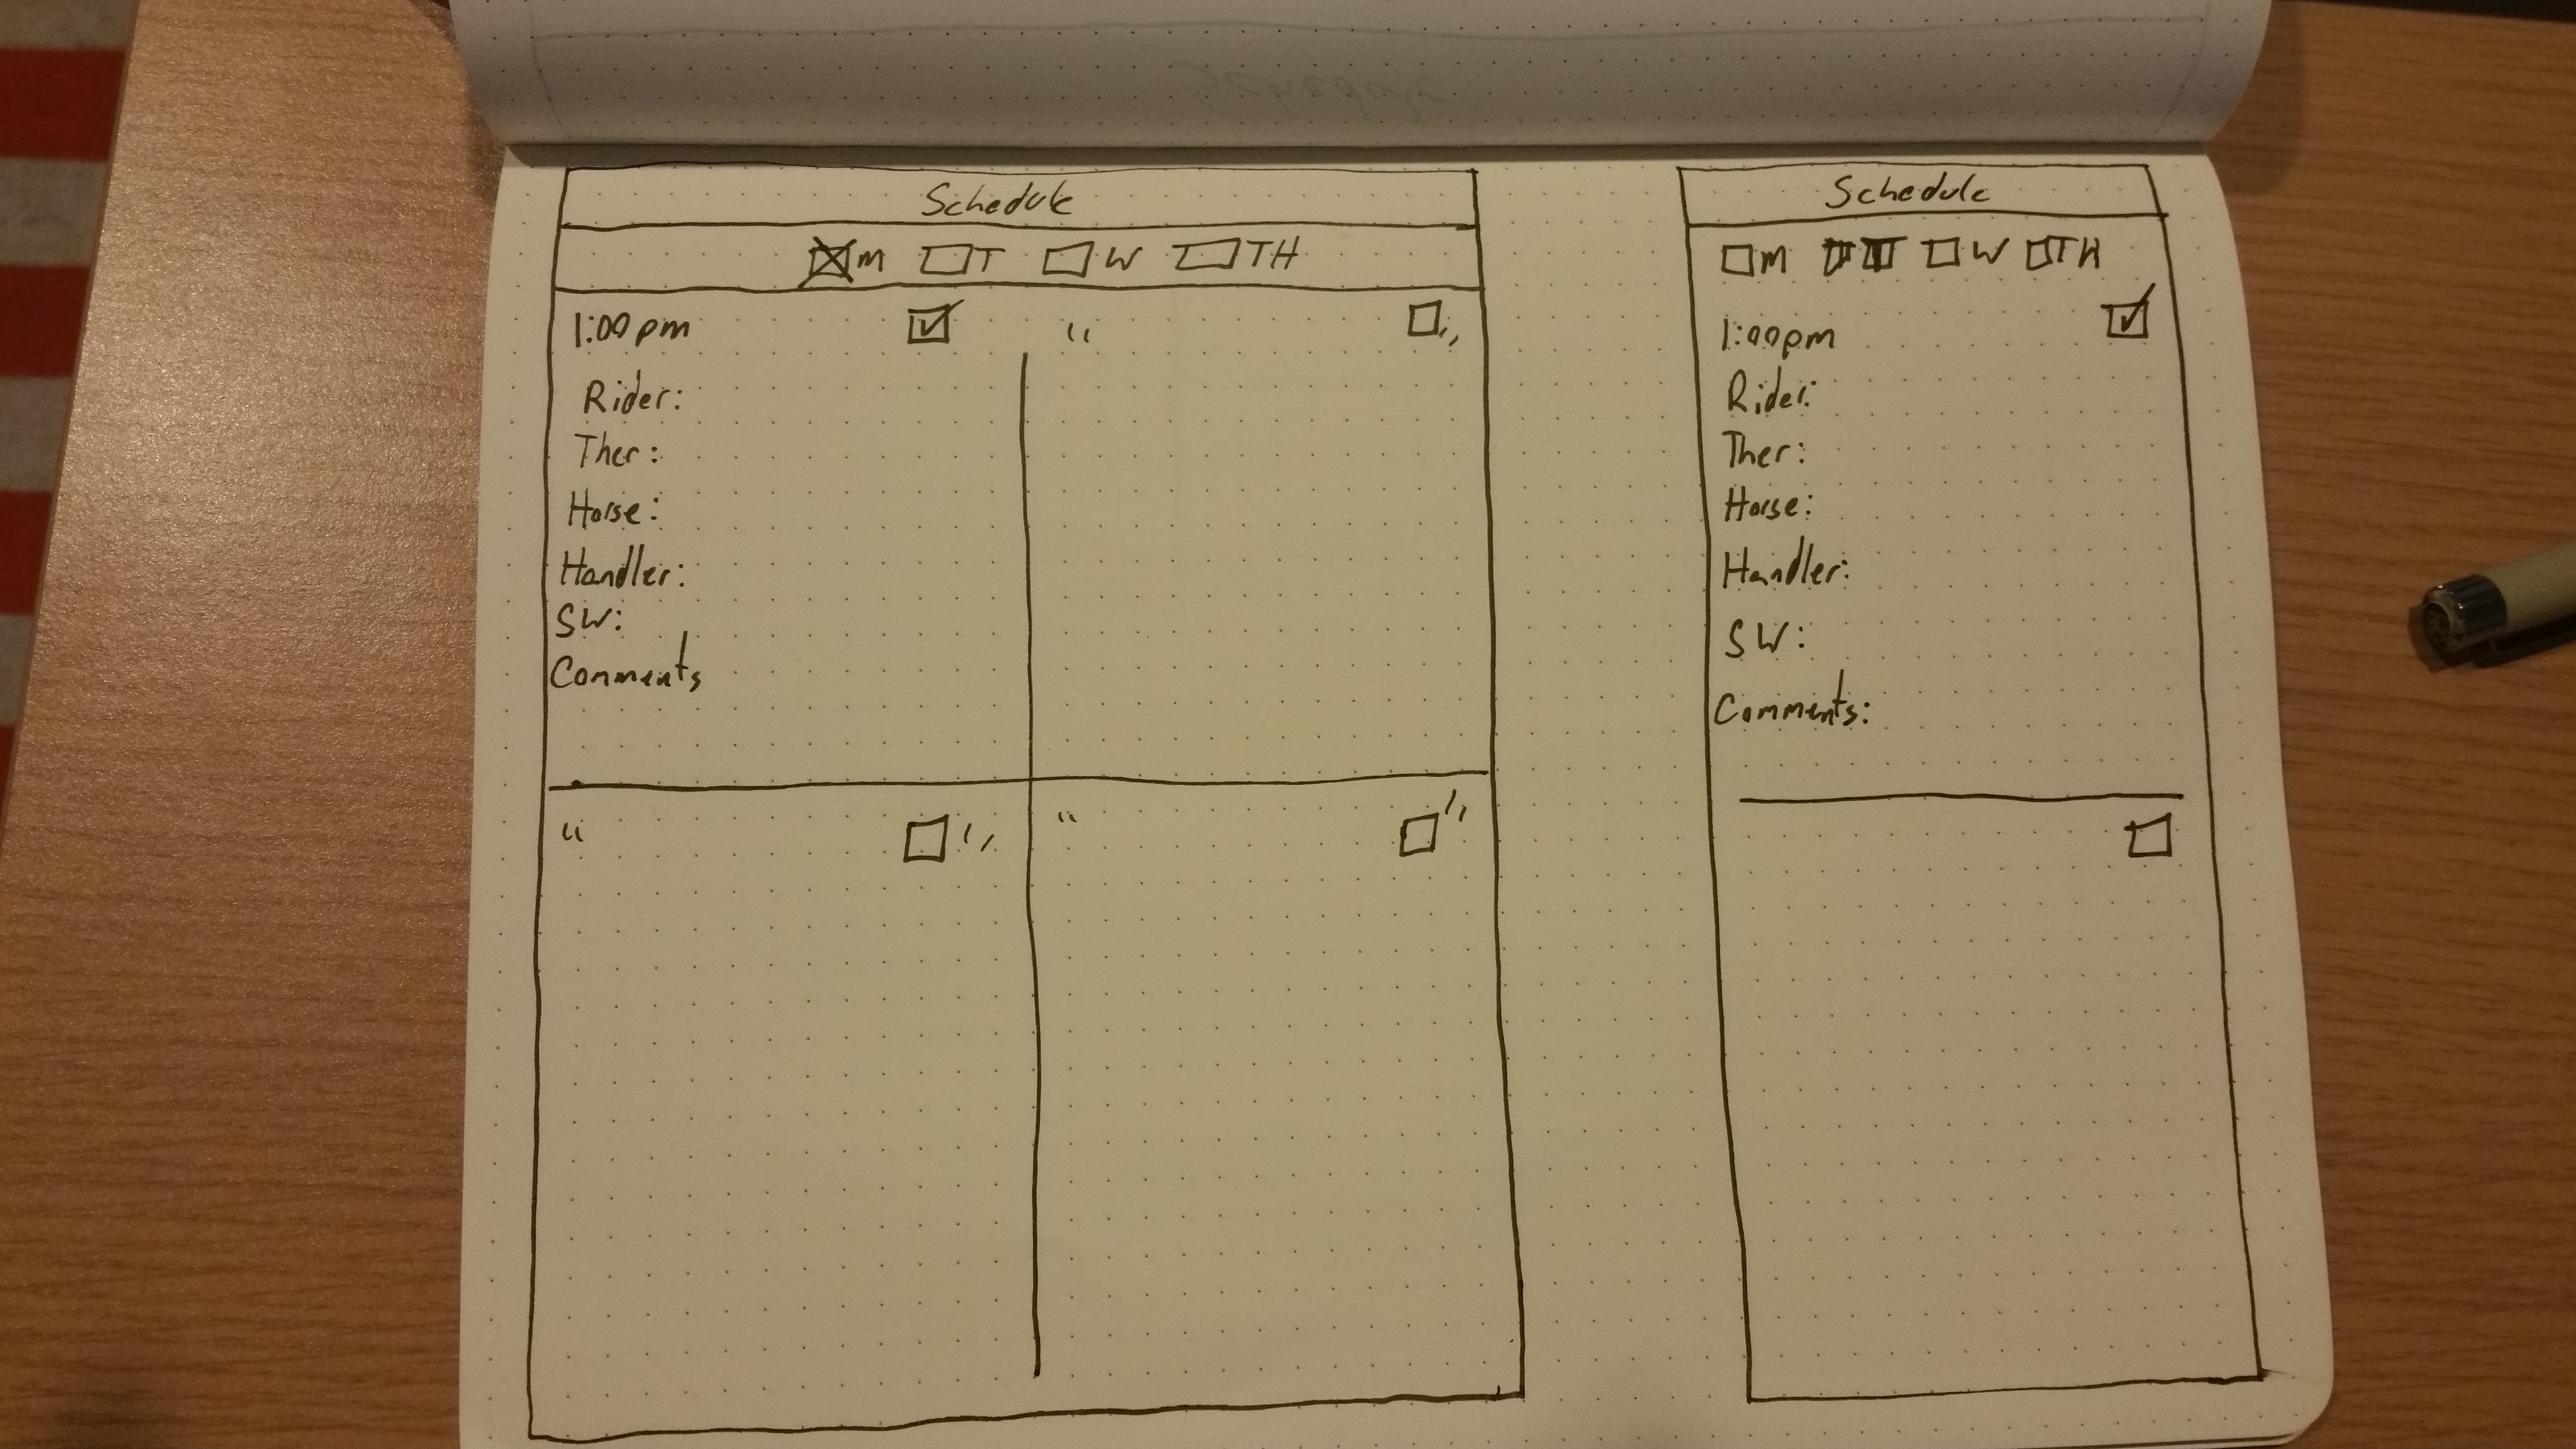 Schedule
M T W TH
1:00pm
Rider:
Ther:
Horse:
Handler:
SW:
Comments
"
"
"
"
"
"
Schedule
M W TH
1:00pm
Rider:
Ther:
Horse:
Handler:
SW:
Comments: